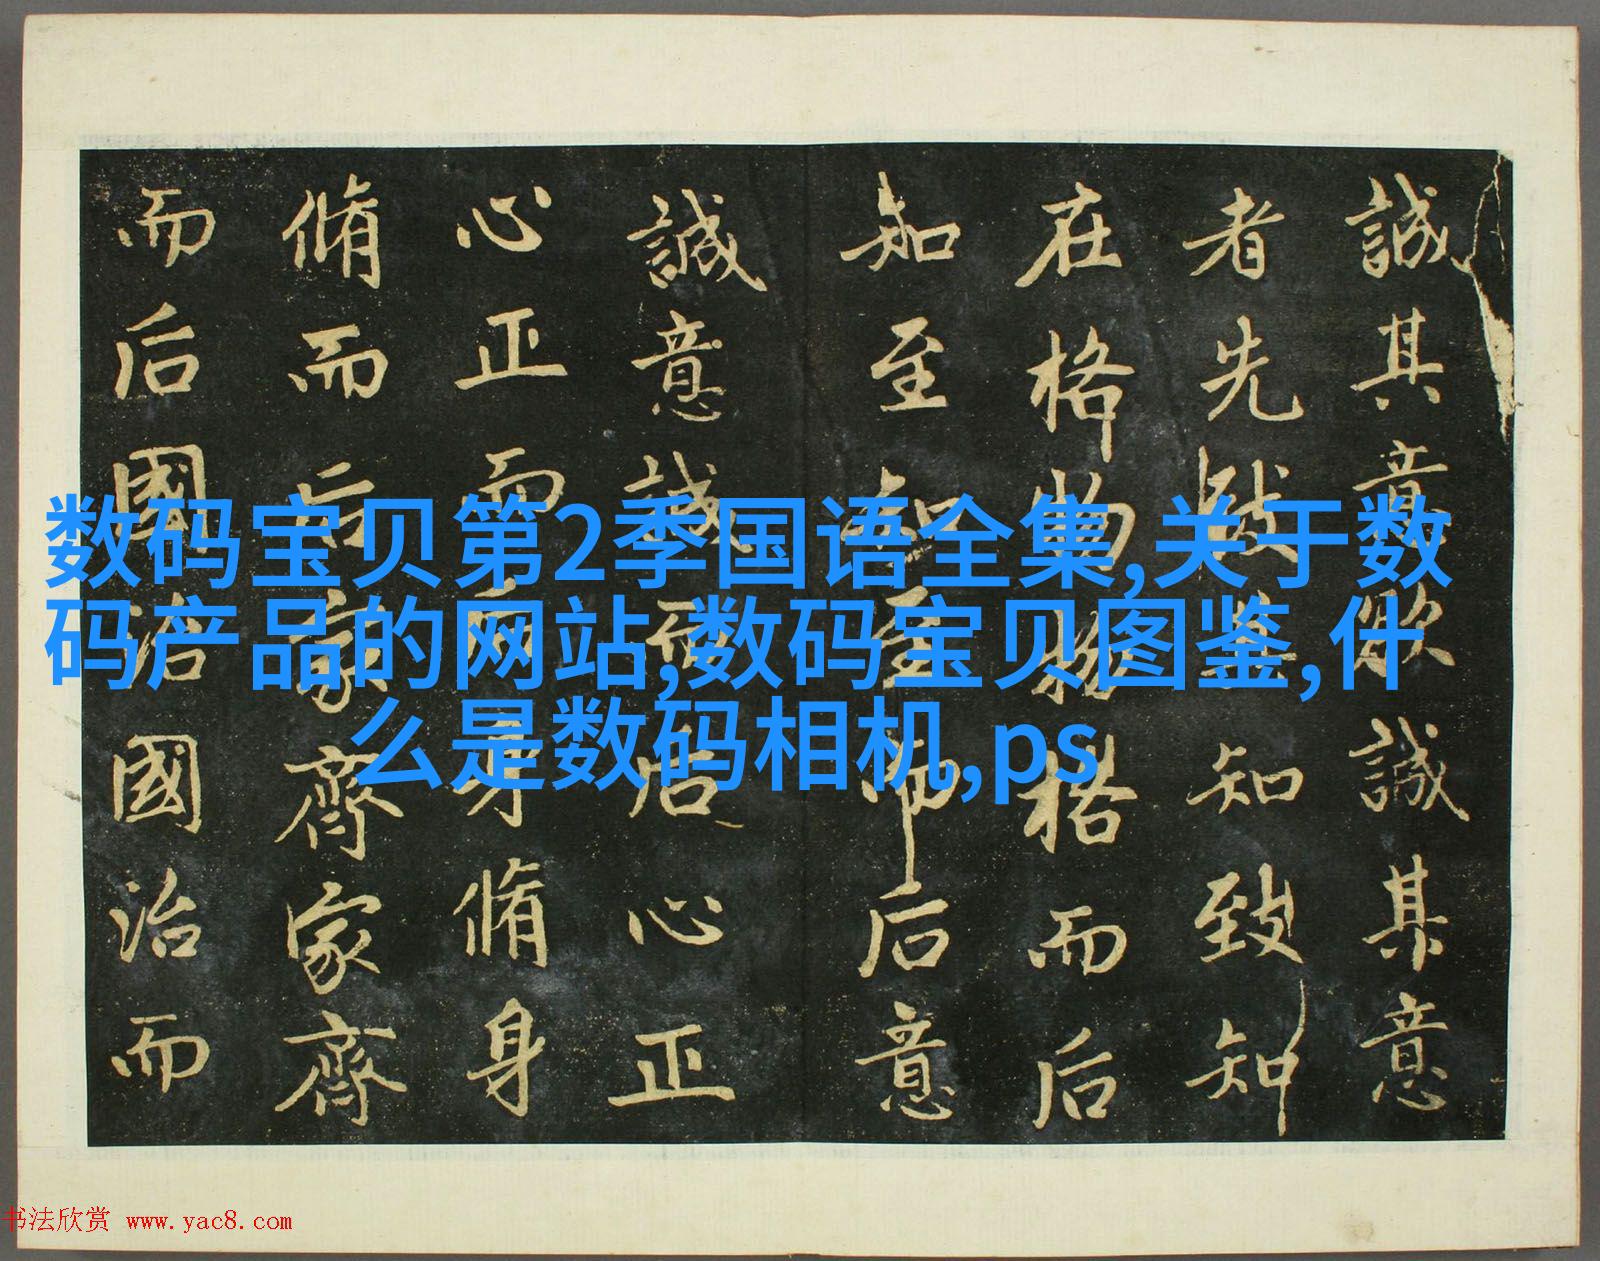 誠其意欲誠其意
者先致其知致知
在格物物格而后
知至知至而后意
誠意誠而后心正
心正而后身脩身
脩而后家齊家齊
而后國治國治而
数码宝贝第2季国语全集,关于数
码产品的网站,数码宝贝图鉴,什
么是数码相机,ps
书法欣赏 www.yac8.com